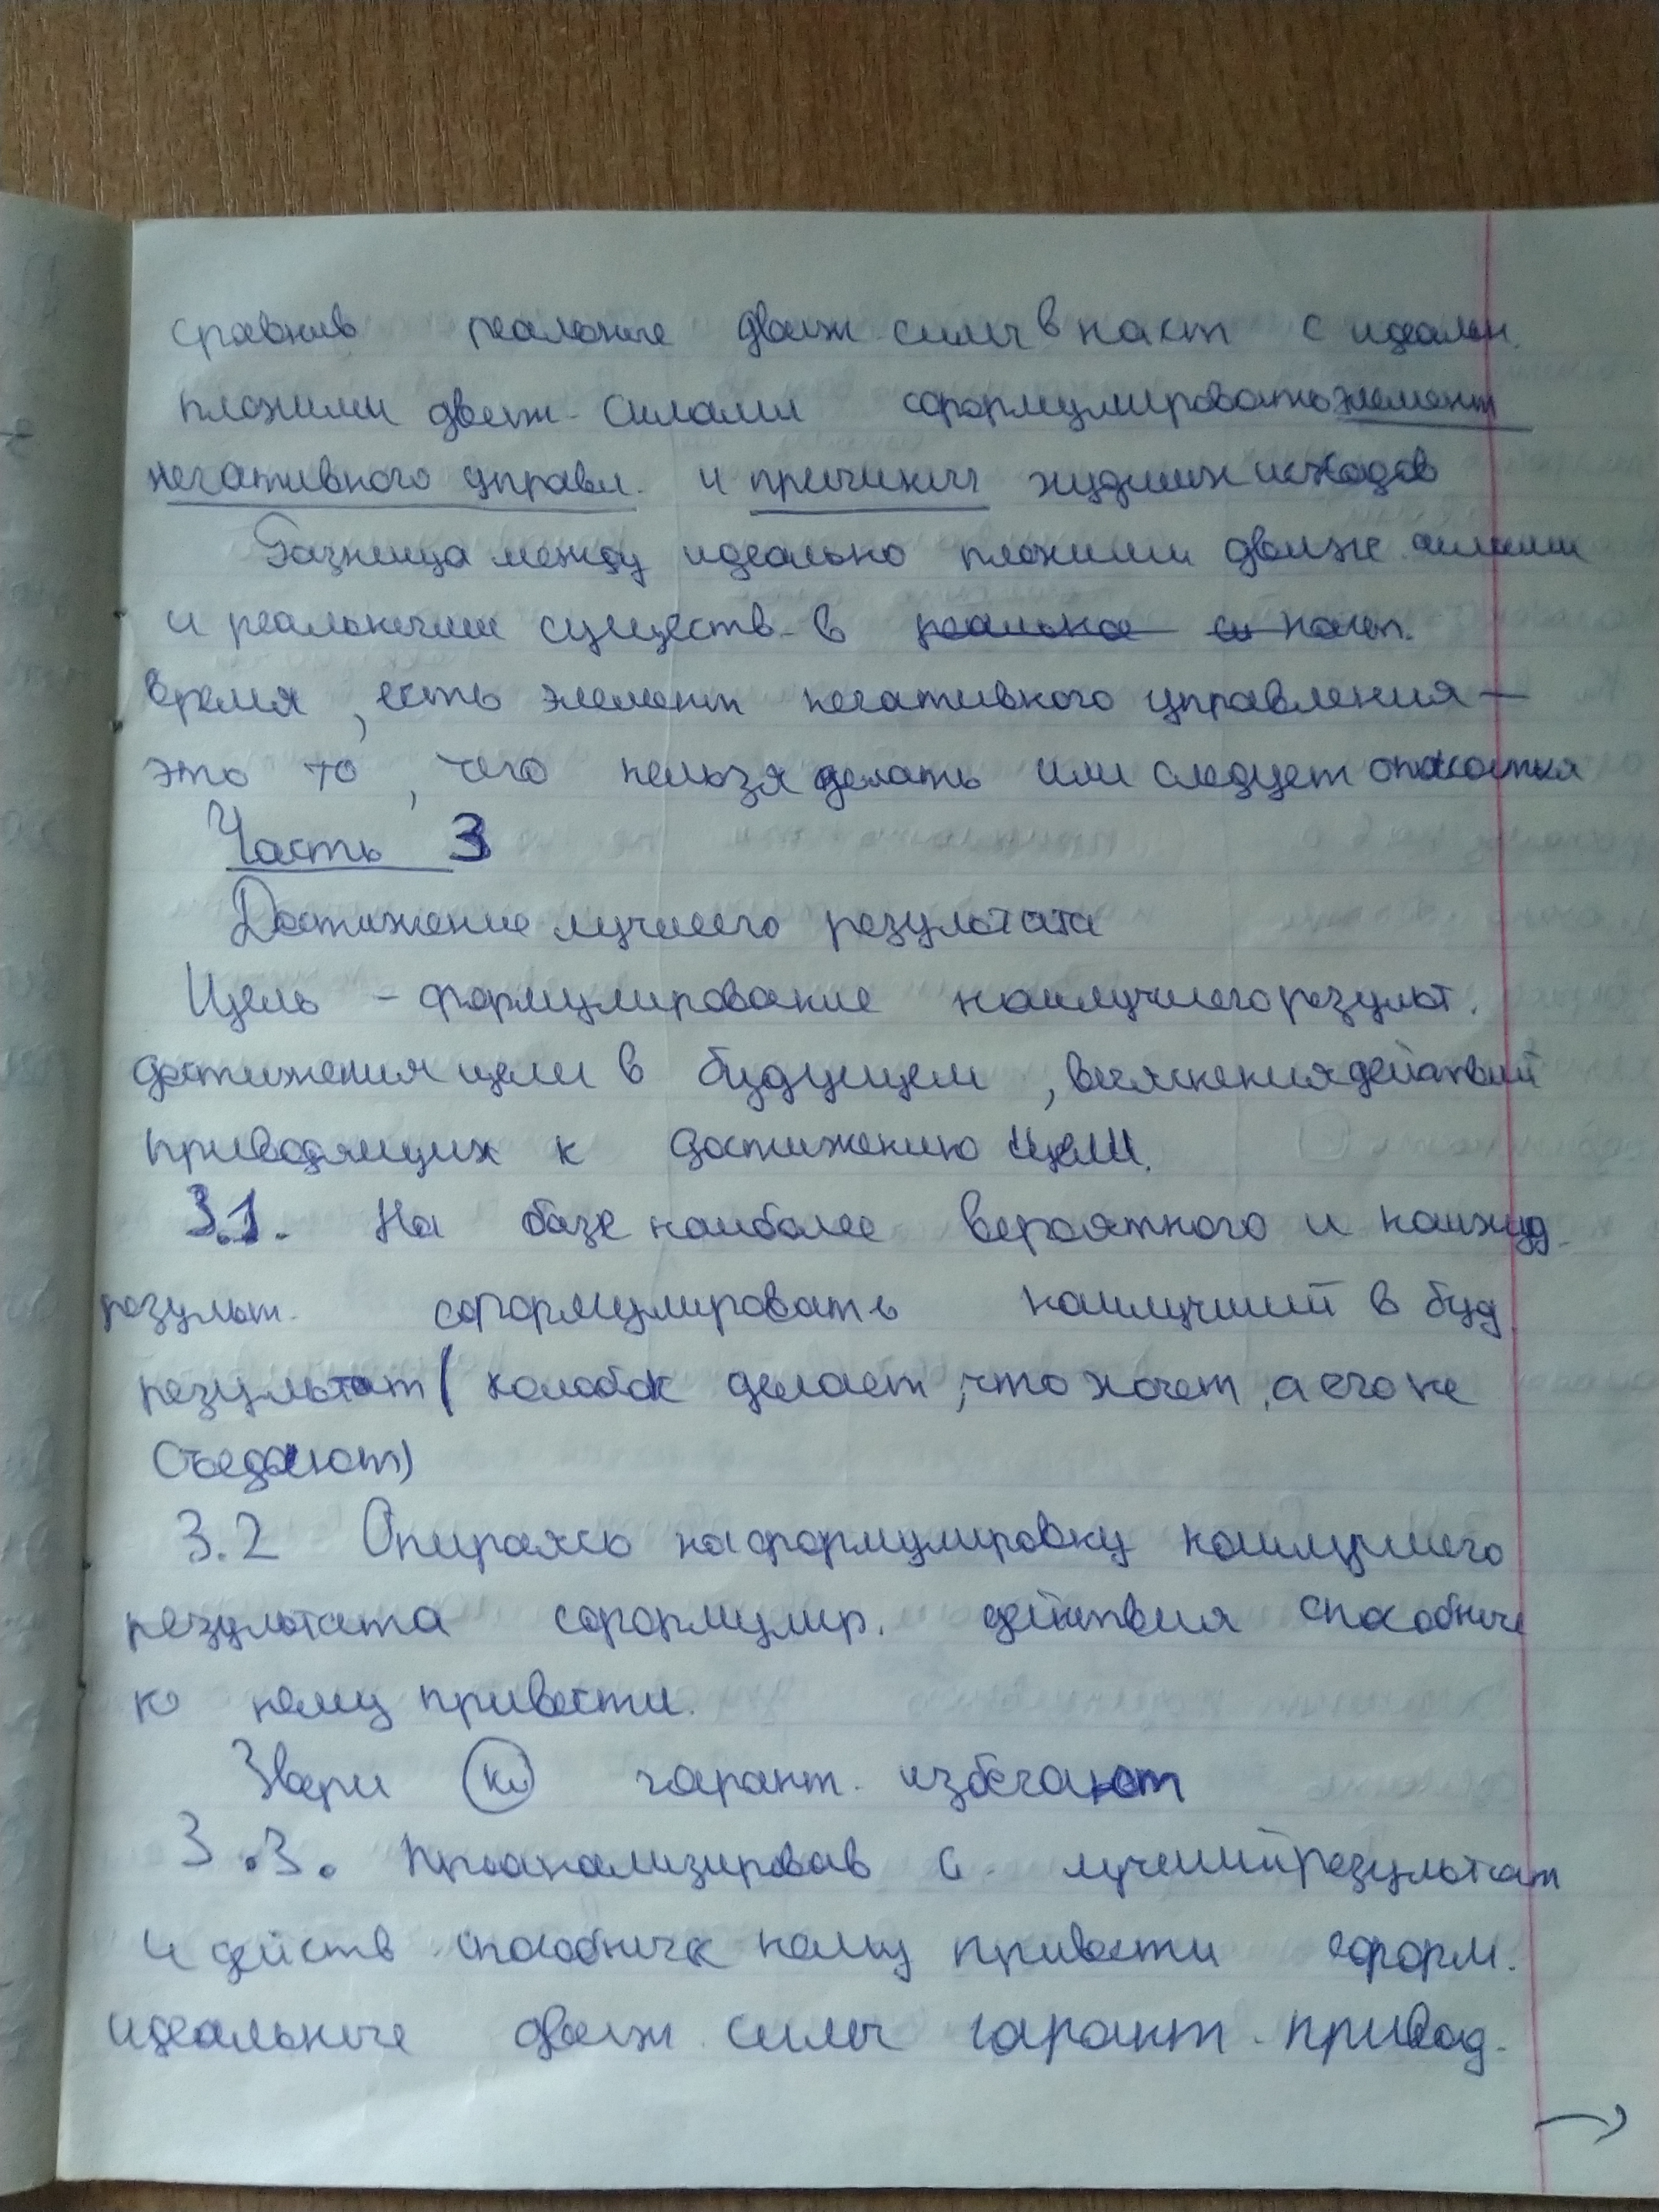 сравнив реальные движ силы в наст с идеальн.
плохими движ. силами сформулировать элемент
негативного управл. и причины худших исходов
Разница между идеально плохими движ. силами
и реальными существ. в реально и наст.
время, есть элемент негативного управления —
это то, чего нельзя делать или следует опасаться
Часть 3
Достижение лучшего результата
Цель - формулирование наилучшего результ.
достижения цели в будущем, выяснения действий
приводящих к достижению цели.
3.1. На базе наиболее вероятного и наихуд.
результ. сформулировать наилучший в буд.
результат (колобок делает, что хочет, а его не
съедают)
3.2 Опираясь на формулировку наилучшего
результата сформулир. действия способные
к нему привести.
Звери гарант. избегают
3.3. Проанализировав с. лучший результат
и действ способные к нему привести сформ.
идеальные движ. силы гарант. привод.